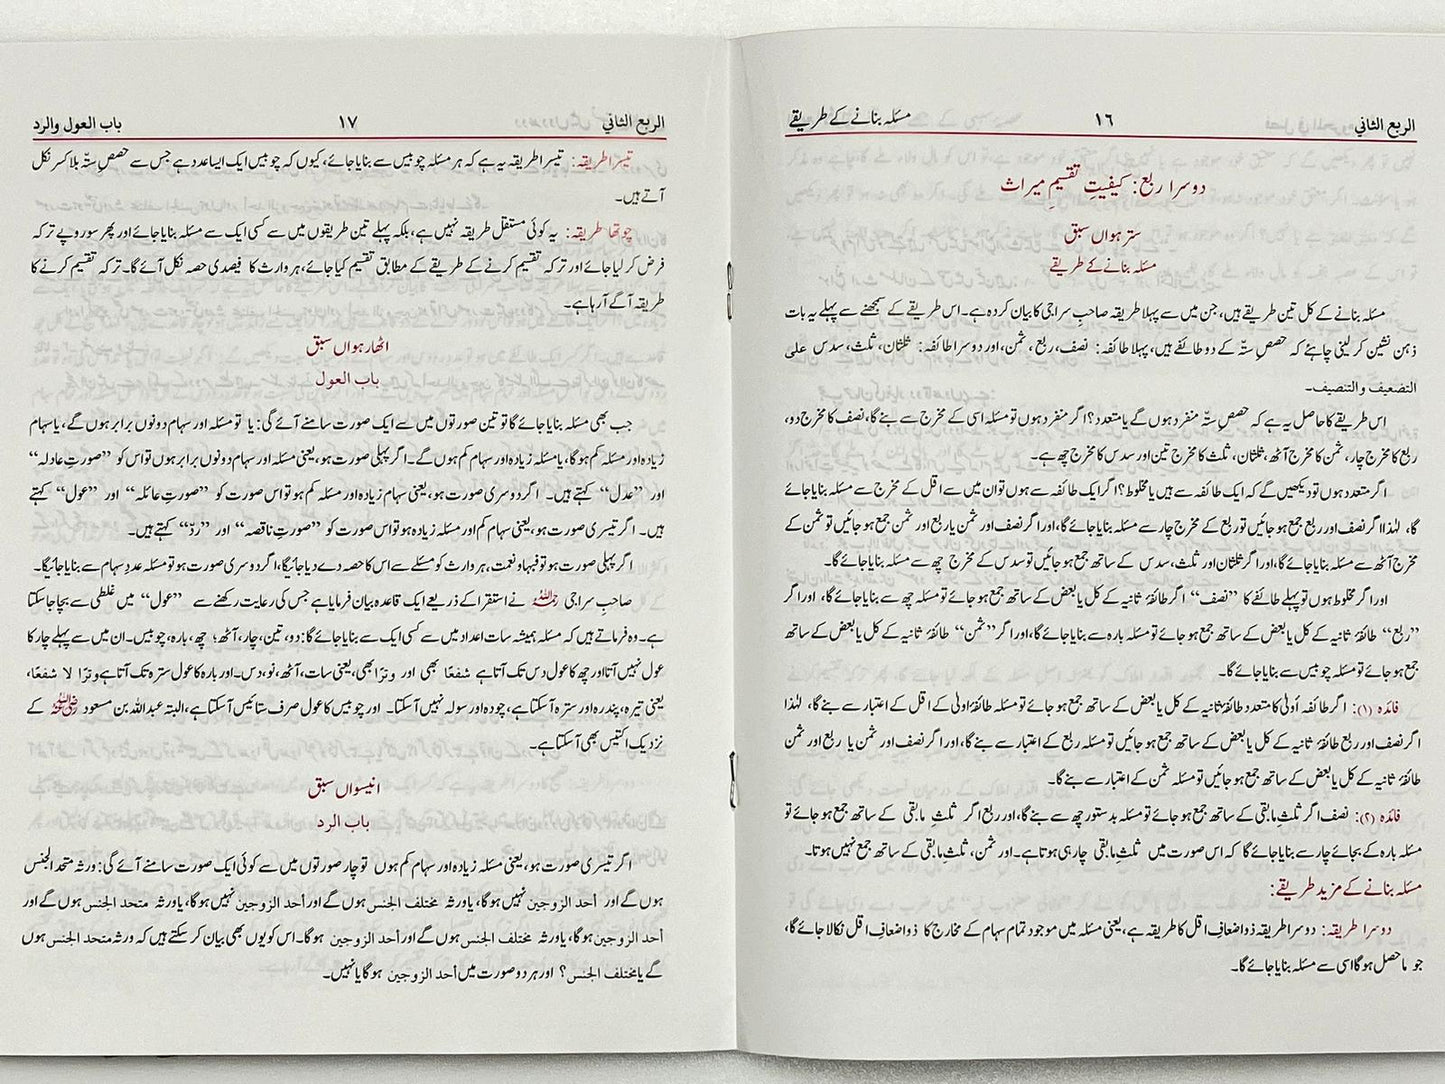 الربع الثاني ۱۶ مسئلہ بنانے کے طریقے
دوسرا ربع: کیفیتِ تقسیمِ میراث
سترہواں سبق
مسئلہ بنانے کے طریقے
مسئلہ بنانے کے کل تین طریقے ہیں، جن میں سے پہلا طریقہ صاحبِ سراجی کا بیان کردہ ہے۔ اس طریقے کے سمجھنے سے پہلے یہ بات
ذہن نشین کر لینی چاہئے کہ حصصِ ستّہ کے دو طائفے ہیں، پہلا طائفہ: نصف، ربع، ثمن، اور دوسرا طائفہ: ثلثان، ثلث، سدس علی
التضعيف والتنصيف۔
اس طریقے کا حاصل یہ ہے کہ حصصِ ستّہ منفرد ہوں گے یا متعدد؟ اگر منفرد ہوں تو مسئلہ اسی کے مخرج سے بنے گا، نصف کا مخرج دو،
ربع کا مخرج چار، ثمن کا مخرج آٹھ، ثلثان، ثلث کا مخرج تین اور سدس کا مخرج چھ ہے۔
اگر متعدد ہوں تو دیکھیں گے کہ ایک طائفہ سے ہیں یا مخلوط؟ اگر ایک طائفہ سے ہوں تو ان میں سے اقل کے مخرج سے مسئلہ بنایا جائے
گا، لہٰذا اگر نصف اور ربع جمع ہو جائیں تو ربع کے مخرج چار سے مسئلہ بنایا جائے گا، اور اگر نصف اور ثمن یا ربع اور ثمن جمع ہو جائیں تو ثمن کے
مخرج آٹھ سے مسئلہ بنایا جائے گا، اور اگر ثلثان اور ثلث، سدس کے ساتھ جمع ہو جائیں تو سدس کے مخرج چھ سے مسئلہ بنایا جائے گا۔
اور اگر مخلوط ہوں تو پہلے طائفے کا ”نصف“ اگر طائفۂ ثانیہ کے کل یا بعض کے ساتھ جمع ہو جائے تو مسئلہ چھ سے بنایا جائے گا، اور اگر
”ربع“ طائفۂ ثانیہ کے کل یا بعض کے ساتھ جمع ہو جائے تو مسئلہ بارہ سے بنایا جائے گا، اور اگر ”ثمن“ طائفۂ ثانیہ کے کل یا بعض کے ساتھ
جمع ہو جائے تو مسئلہ چوبیس سے بنایا جائے گا۔
فائدہ (۱): اگر طائفہ اُولیٰ کا متعدد طائفۂ ثانیہ کے کل یا بعض کے ساتھ جمع ہو جائے تو مسئلہ طائفۂ اولیٰ کے اقل کے اعتبار سے بنے گا، لہٰذا
اگر نصف اور ربع طائفۂ ثانیہ کے کل یا بعض کے ساتھ جمع ہو جائیں تو مسئلہ ربع کے اعتبار سے بنے گا، اور اگر نصف اور ثمن یا ربع اور ثمن
طائفۂ ثانیہ کے کل یا بعض کے ساتھ جمع ہو جائیں تو مسئلہ ثمن کے اعتبار سے بنے گا۔
فائدہ (۲): نصف اگر ثلثِ مابقی کے ساتھ جمع ہو جائے تو مسئلہ بدستور چھ سے بنے گا، اور ربع اگر ثلثِ مابقی کے ساتھ جمع ہو جائے تو
مسئلہ بارہ کے بجائے چار سے بنایا جائے گا کہ اس صورت میں ثلثِ مابقی چار ہی ہوتا ہے۔ اور ثمن، ثلثِ مابقی کے ساتھ جمع نہیں ہوتا۔
مسئلہ بنانے کے مزید طریقے:
دوسرا طریقہ: دوسرا طریقہ ذواضعافِ اقل کا طریقہ ہے، یعنی مسئلہ میں موجود تمام سہام کے مخارج کا ذواضعاف اقل نکالا جائے گا،
جو ماحصل ہوگا اسی سے مسئلہ بنایا جائے گا۔
الربع الثاني ۱۷ باب العول والرد
تیسرا طریقہ: تیسرا طریقہ یہ ہے کہ ہر مسئلہ چوبیس سے بنایا جائے، کیوں کہ چوبیس ایک ایسا عدد ہے جس سے حصصِ ستّہ بلا کسر نکل
آتے ہیں۔
چوتھا طریقہ: یہ کوئی مستقل طریقہ نہیں ہے، بلکہ پہلے تین طریقوں میں سے کسی ایک سے مسئلہ بنایا جائے اور پھر سو روپے ترکہ
فرض کر لیا جائے اور ترکہ تقسیم کرنے کے طریقے کے مطابق تقسیم کیا جائے، ہر وارث کا فیصدی حصہ نکل آئے گا۔ ترکہ تقسیم کرنے کا
طریقہ آگے آرہا ہے۔
اٹھارہواں سبق
باب العول
جب بھی مسئلہ بنایا جائے گا تو تین صورتوں میں سے ایک صورت سامنے آئے گی: یا تو مسئلہ اور سہام دونوں برابر ہوں گے، یا سہام
زیادہ اور مسئلہ کم ہوگا، یا مسئلہ زیادہ اور سہام کم ہوں گے۔ اگر پہلی صورت ہو، یعنی مسئلہ اور سہام دونوں برابر ہوں تو اس کو ”صورتِ عادلہ“
اور ”عدل“ کہتے ہیں۔ اگر دوسری صورت ہو، یعنی سہام زیادہ اور مسئلہ کم ہو تو اس صورت کو ”صورتِ عائلہ“ اور ”عول“ کہتے
ہیں۔ اگر تیسری صورت ہو، یعنی سہام کم اور مسئلہ زیادہ ہو تو اس صورت کو ”صورتِ ناقصہ“ اور ”ردّ“ کہتے ہیں۔
اگر پہلی صورت ہو تو فبہا ونعمت، ہر وارث کو مسئلے سے اس کا حصہ دے دیا جائیگا، اگر دوسری صورت ہو تو مسئلہ عددِ سہام سے بنایا جائیگا۔
صاحبِ سراجی رحمہ اللہ نے استقرا کے ذریعے ایک قاعدہ بیان فرمایا ہے جس کی رعایت رکھنے سے ”عول“ میں غلطی سے بچا جاسکتا
ہے۔ وہ فرماتے ہیں کہ مسئلہ ہمیشہ سات اعداد میں سے کسی ایک سے بنایا جائے گا: دو، تین، چار، آٹھ؛ چھ، بارہ، چوبیس۔ ان میں سے پہلے چار کا
عول نہیں آتا اور چھ کا عول دس تک آتا ہے شفعًا بھی اور وترًا بھی، یعنی سات، آٹھ، نو، دس۔ اور بارہ کا عول سترہ تک آتا ہے وترًا لا شفعًا،
یعنی تیرہ، پندرہ اور سترہ آسکتا ہے، چودہ اور سولہ نہیں آسکتا۔ اور چوبیس کا عول صرف ستائیس آسکتا ہے، البتہ عبداللہ بن مسعود رضی اللہ عنہ کے
نزدیک اکتیس بھی آسکتا ہے۔
انیسواں سبق
باب الرد
اگر تیسری صورت ہو، یعنی مسئلہ زیادہ اور سہام کم ہوں تو چار صورتوں میں سے کوئی ایک صورت سامنے آئے گی: ورثہ متحد الجنس
ہوں گے اور أحد الزوجين نہیں ہوگا، یا ورثہ مختلف الجنس ہوں گے اور أحد الزوجين نہیں ہوگا، یا ورثہ متحد الجنس ہوں گے اور
أحد الزوجين ہوگا، یا ورثہ مختلف الجنس ہوں گے اور أحد الزوجين ہوگا۔ اس کو یوں بھی بیان کر سکتے ہیں کہ ورثہ متحد الجنس ہوں
گے یا مختلف الجنس؟ اور ہر دو صورت میں أحد الزوجين ہوگا یا نہیں۔